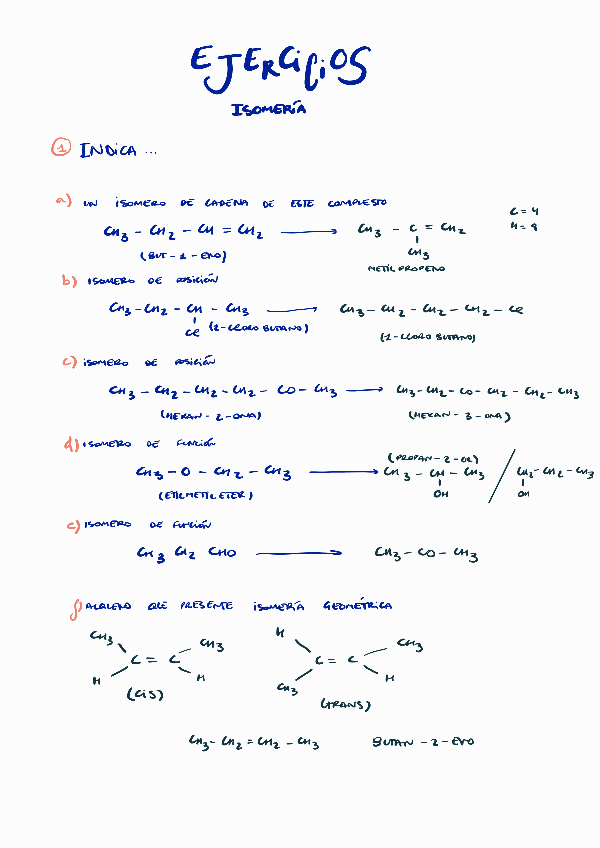 EJERCICIOS
ISOMERÍA
1 INDICA ...
a) UN ISOMERO DE CADENA DE ESTE COMPUESTO
C = 4
H = 8
CH3 - CH2 - CH = CH2 → CH3 - C = CH2
CH3
(BUT - 1 - ENO)
METIL PROPENO
b) ISOMERO DE POSICIÓN
CH3 - CH2 - CH - CH3 → CH3 - CH2 - CH2 - CH2 - Cl
Cl (2-CLORO BUTANO)
(1-CLORO BUTANO)
c) ISOMERO DE POSICIÓN
CH3 - CH2 - CH2 - CH2 - CO - CH3 → CH3 - CH2 - CO - CH2 - CH2 - CH3
(HEXAN - 2 - ONA) (HEXAN - 3 - ONA)
d) ISOMERO DE FUNCIÓN
(PROPAN - 2 - OL)
CH3 - O - CH2 - CH3 → CH3 - CH - CH3 / CH2 - CH2 - CH3
OH OH
(ETIL METIL ETER)
e) ISOMERO DE FUNCIÓN
CH3 CH2 CHO → CH3 - CO - CH3
f) ALQUENO QUE PRESENTE ISOMERÍA GEOMÉTRICA
CH3 CH3 H CH3
C = C C = C
H H CH3 H
(CIS) (TRANS)
CH3 - CH2 = CH2 - CH3 BUTAN - 2 - ENO